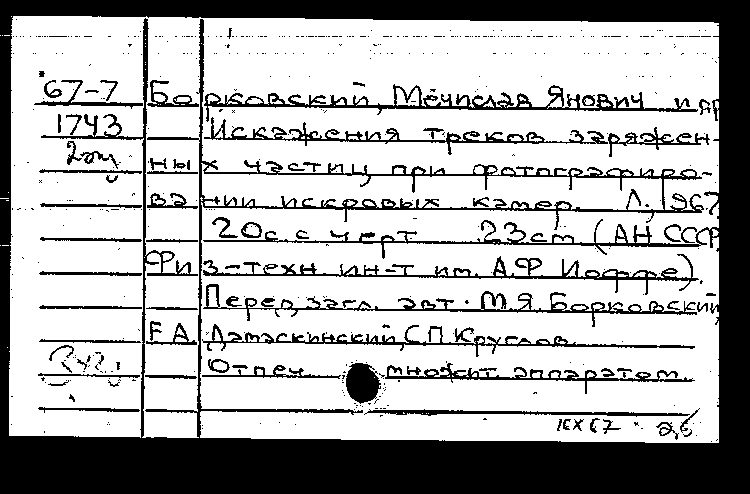 67-7 Борковский, Мечислав Янович и др
1743 Искажения треков заряжен-
2эт ных частиц при фотографиро-
вании искровых камер. Л., 1967
20с с черт 23см (АН СССР
Физ-техн ин-т им. А.Ф Иоффе).
Перед загл. авт. М.Я. Борковский,
Е А. Дамаскинский, С.П Круглов
Отпеч. множит. аппаратом.
IX 67